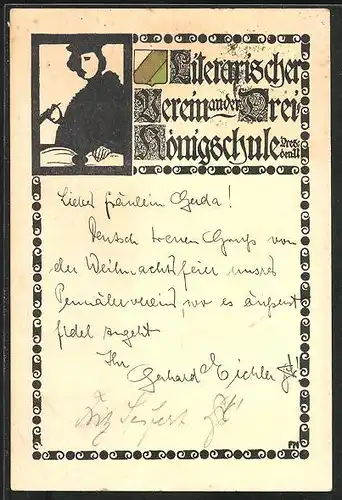 Literarischer
Verein an der Drei
Königschule Dres-
den N
Liebes Fräulein Gerda!
Deutsch treuen Gruß von
der Weihnachtsfeier unsres
Pennälervereins, wo es äußerst
fidel zugeht
Ihr
Gerhard Eichler
Fritz Seifert
FM